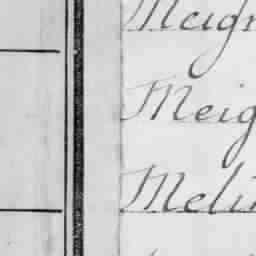 Meign
Meig
Meli